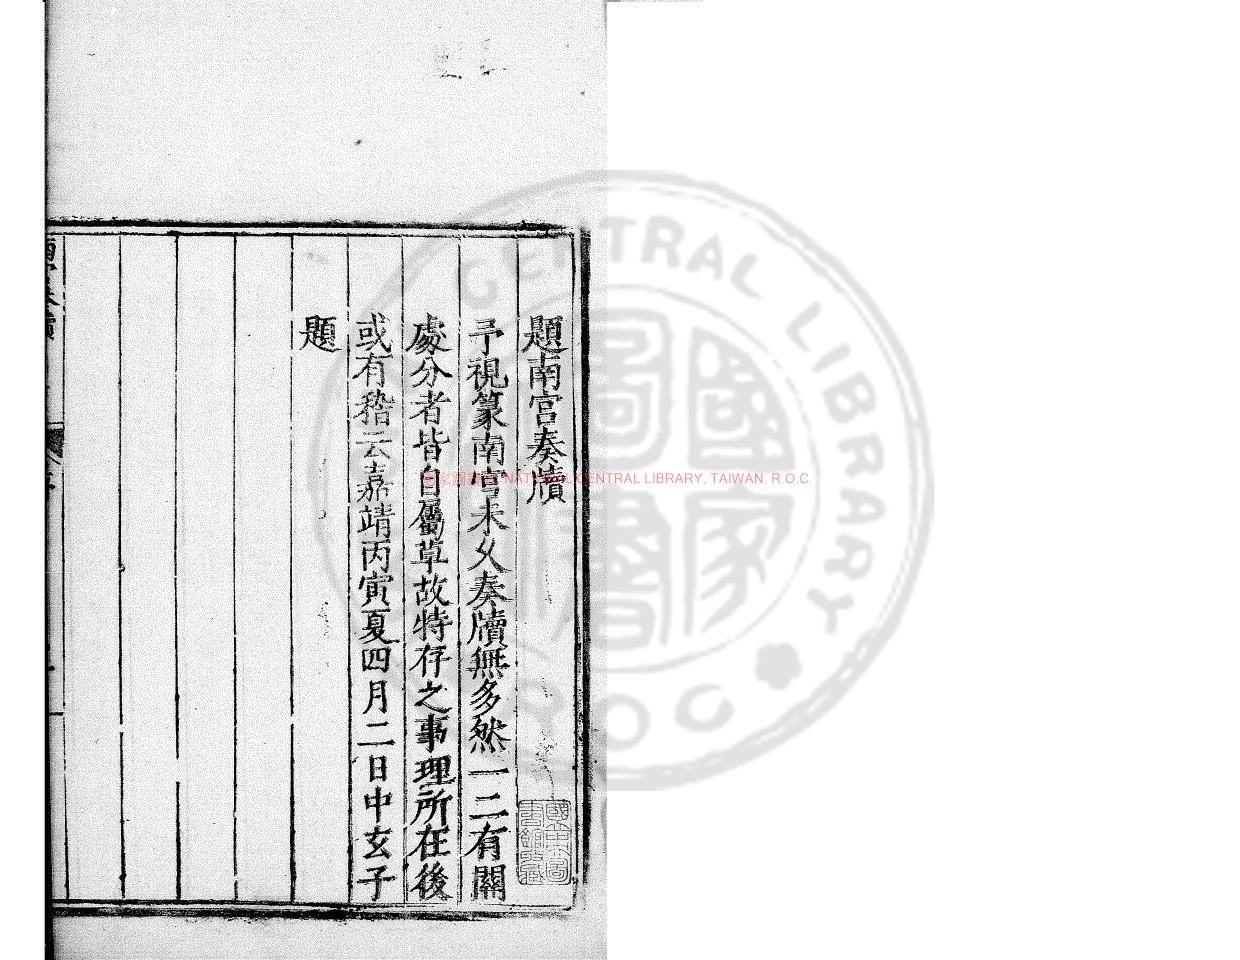 題南宮奏牘
予視篆南宮未久奏牘無多然一二有關
處分者皆自屬草故特存之事理所在後
或有稽云嘉靖丙寅夏四月二日中玄子
題
NATIONAL CENTRAL LIBRARY, TAIWAN, R.O.C.
CENTRAL LIBRARY
ROC
國家圖書館